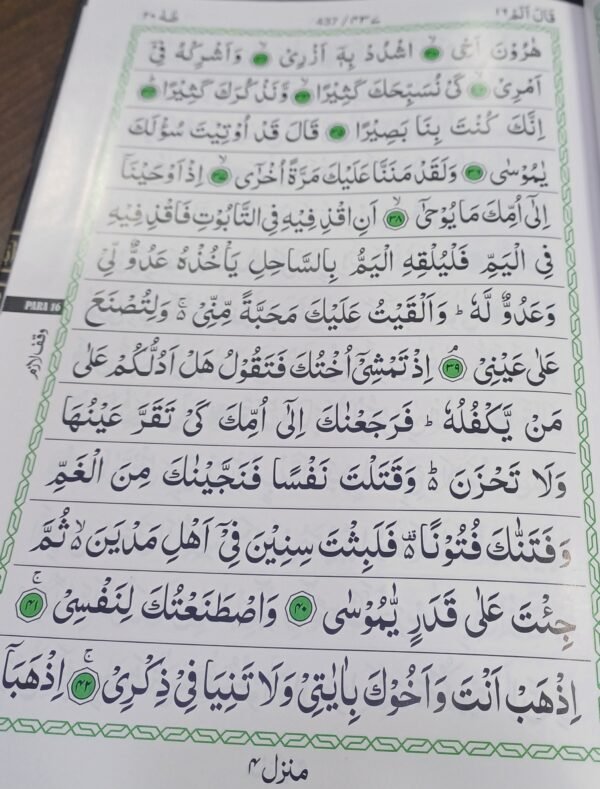 قَالَ اَلَمْ ١٦
437 / ٤٣٧
طٰهٰ ٢٠
هٰرُوْنَ اَخِى ۙ ٣٠ اشْدُدْ بِهٖٓ اَزْرِىْ ۙ ٣١ وَاَشْرِكْهُ فِىْٓ
اَمْرِىْ ۙ ٣٢ كَىْ نُسَبِّحَكَ كَثِيْرًا ۙ ٣٣ وَّنَذْكُرَكَ كَثِيْرًا ؕ ٣٤
اِنَّكَ كُنْتَ بِنَا بَصِيْرًا ٣٥ قَالَ قَدْ اُوْتِيْتَ سُؤْلَكَ
يٰمُوْسٰى ٣٦ وَلَقَدْ مَنَنَّا عَلَيْكَ مَرَّةً اُخْرٰٓى ۙ ٣٧ اِذْ اَوْحَيْنَآ
اِلٰٓى اُمِّكَ مَا يُوْحٰٓى ۙ ٣٨ اَنِ اقْذِفِيْهِ فِى التَّابُوْتِ فَاقْذِفِيْهِ
فِى الْيَمِّ فَلْيُلْقِهِ الْيَمُّ بِالسَّاحِلِ يَاْخُذْهُ عَدُوٌّ لِّىْ
وَعَدُوٌّ لَّهٗ ؕ وَاَلْقَيْتُ عَلَيْكَ مَحَبَّةً مِّنِّىْ ۚ وَلِتُصْنَعَ
PARA 16
وقف لازم
عَلٰى عَيْنِىْ ۘ ٣٩ اِذْ تَمْشِىْٓ اُخْتُكَ فَتَقُوْلُ هَلْ اَدُلُّكُمْ عَلٰى
مَنْ يَّكْفُلُهٗ ؕ فَرَجَعْنٰكَ اِلٰٓى اُمِّكَ كَىْ تَقَرَّ عَيْنُهَا
وَلَا تَحْزَنَ ؕ وَقَتَلْتَ نَفْسًا فَنَجَّيْنٰكَ مِنَ الْغَمِّ
وَفَتَنّٰكَ فُتُوْنًا ۫ فَلَبِثْتَ سِنِيْنَ فِىْٓ اَهْلِ مَدْيَنَ ۙ ثُمَّ
جِئْتَ عَلٰى قَدَرٍ يّٰمُوْسٰى ٤٠ وَاصْطَنَعْتُكَ لِنَفْسِىْ ۚ ٤١
اِذْهَبْ اَنْتَ وَاَخُوْكَ بِاٰيٰتِىْ وَلَا تَنِيَا فِىْ ذِكْرِىْ ۚ ٤٢ اِذْهَبَآ
منزل ٤